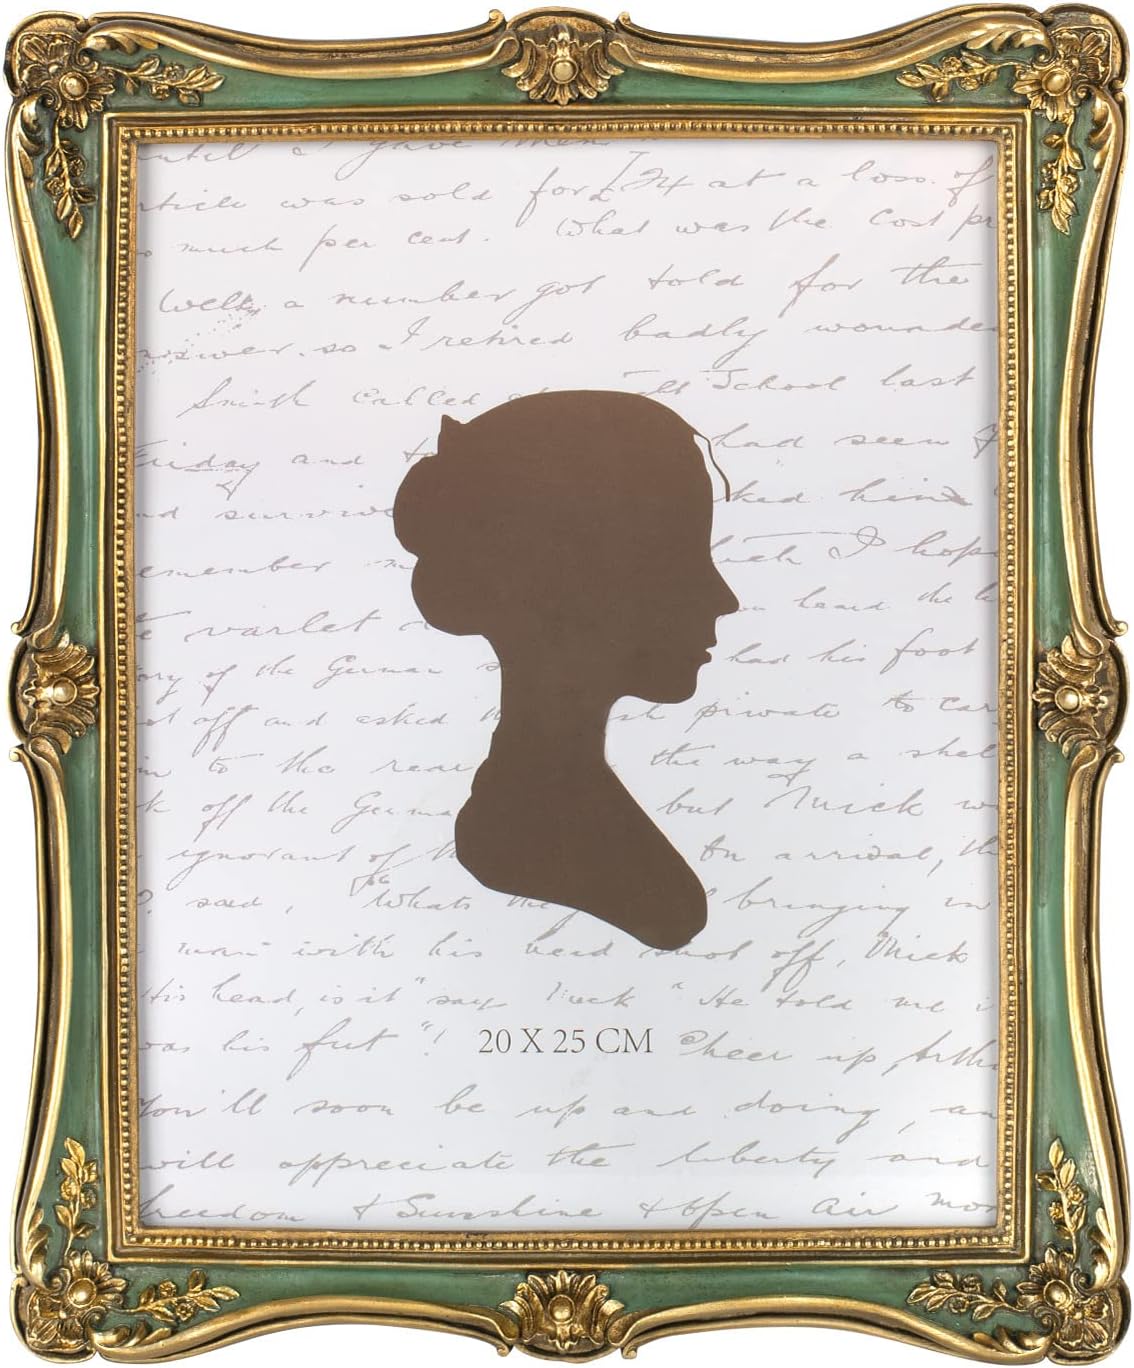 until I gave them
rticle was sold for £74 at a loss of
so much per cent. What was the Cost pr
Well, a number got told for the
answer. so I retired badly wounded
Smith called School last
Friday and to had seen
nd survive ked him
emember m I hope
varlet heard the
ory of the German had his foot
ot off and asked private to car
in to the rear the way a shel
k off the Germa but Mick w
ignorant of On arrival, th
said, Whats the bringing in
man with his head shot off, Mick
His head, is it" say Mick "He told me i
was his feet"! 20 X 25 CM Cheer up, Arthu
You'll soon be up and doing, an
will appreciate the liberty and
freedom & Sunshine & open air mos